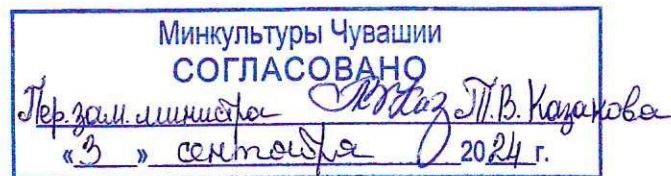 Минкультуры Чувашии
СОГЛАСОВАНО
Пер. зам. министра Т.В. Казакова
«3» сентября 2024 г.